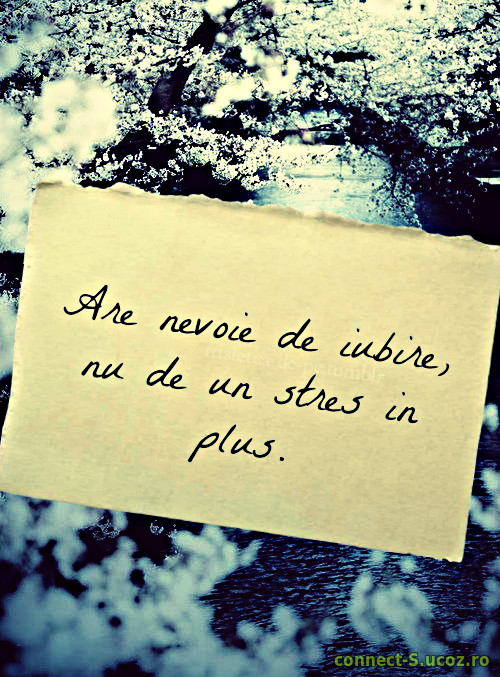 Are nevoie de iubire,
nu de un stres in
plus.
connect-S.ucoz.ro